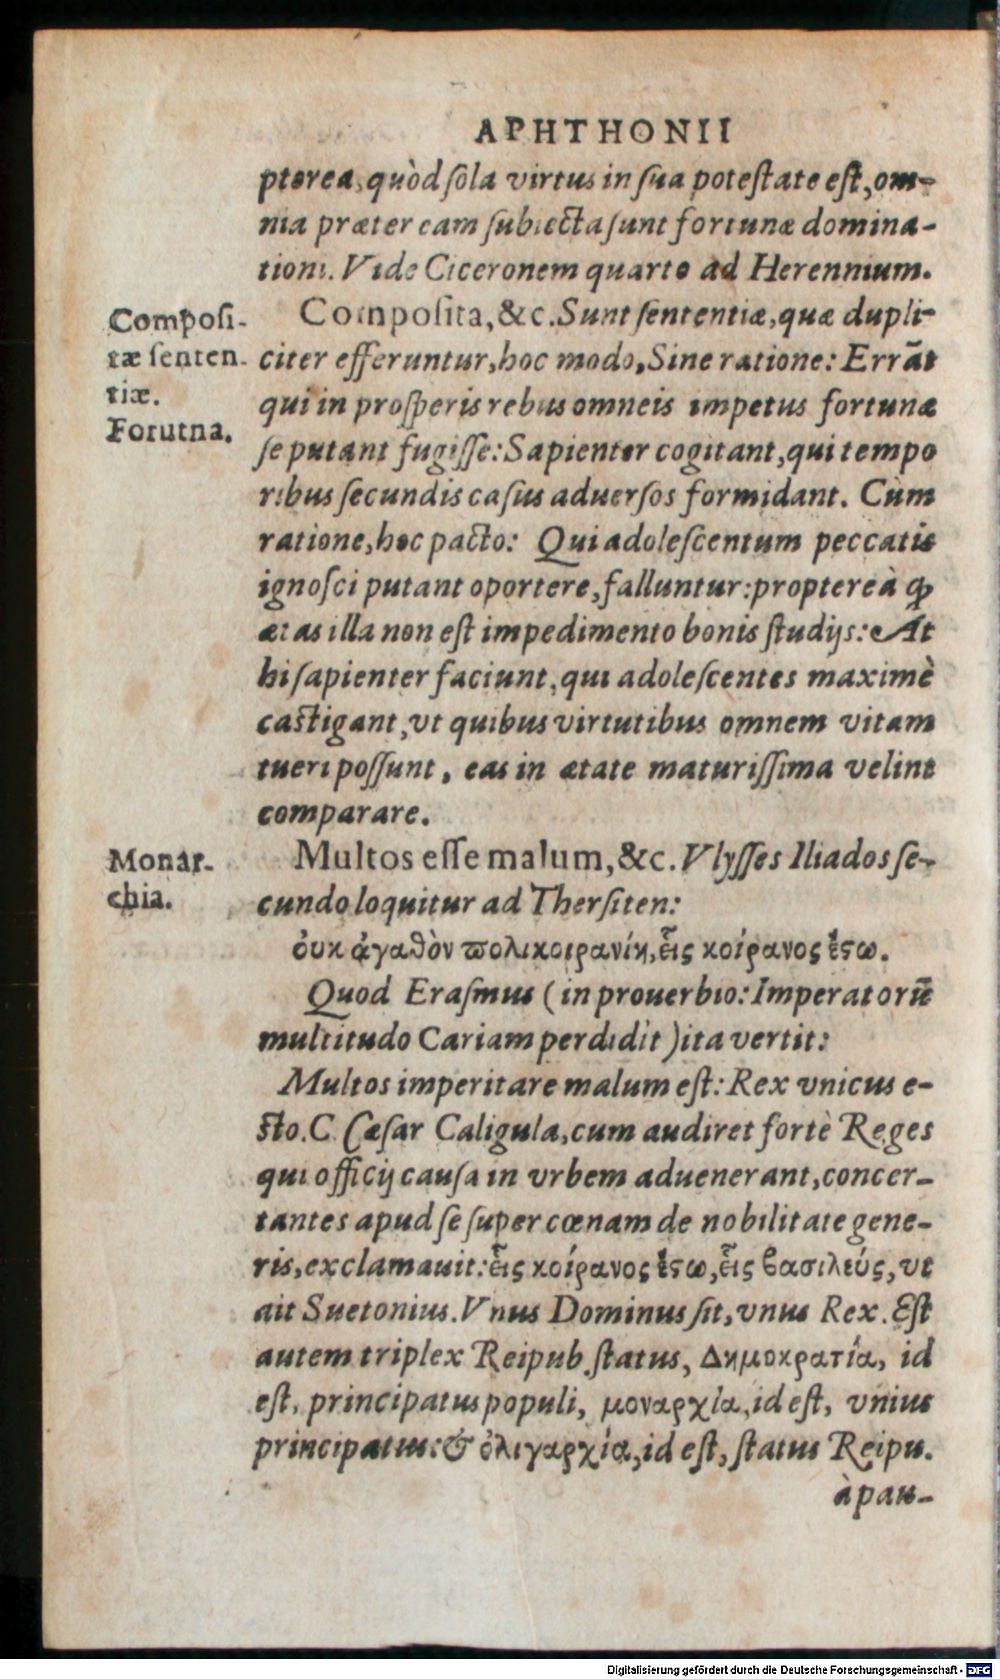 APHTHONII
pterea, quòd ſola virtus in ſua poteſtate eſt, om-
nia præter eam ſubiecta ſunt fortunæ domina-
tioni. Vide Ciceronem quarto ad Herennium.
Compoſi-
tæ ſenten-
tiæ.
Forutna.
Compoſita, &c. Sunt ſententiæ, quæ dupli-
citer efferuntur, hoc modo, Sine ratione: Errāt
qui in proſperis rebus omneis impetus fortunæ
ſe putant fugiſſe: Sapienter cogitant, qui tempo
ribus ſecundis caſus aduerſos formidant. Cùm
ratione, hoc pacto: Qui adoleſcentum peccatis
ignoſci putant oportere, falluntur: propterea ꝙ
ætas illa non eſt impedimento bonis ſtudijs: At
hi ſapienter faciunt, qui adoleſcentes maximè
caſtigant, vt quibus virtutibus omnem vitam
tueri poſſunt, eas in ætate maturiſſima velint
comparare.
Monar-
chia.
Multos eſſe malum, &c. Vlyſſes Iliados ſe-
cundo loquitur ad Therſiten:
ὀυκ ἀγαθὸν πολικοιρανίη, εἷς κοίρανος ἔστω.
Quod Eraſmus (in prouerbio: Imperatorū
multitudo Cariam perdidit) ita vertit:
Multos imperitare malum eſt: Rex vnicus e-
ſto. C. Cæſar Caligula, cum audiret fortè Reges
qui officij cauſa in vrbem aduenerant, concer-
tantes apud ſe ſuper cœnam de nobilitate gene-
ris, exclamauit: εἷς κοίρανος ἔστω, εἷς βασιλεύς, vt
ait Suetonius. Vnus Dominus ſit, vnus Rex. Eſt
autem triplex Reipub. ſtatus, Δημοκρατία, id
eſt, principatus populi, μοναρχία, id eſt, vnius
principatus: & ὀλιγαρχία, id eſt, ſtatus Reipu.
à pau-
Digitalisierung gefördert durch die Deutsche Forschungsgemeinschaft - DFG